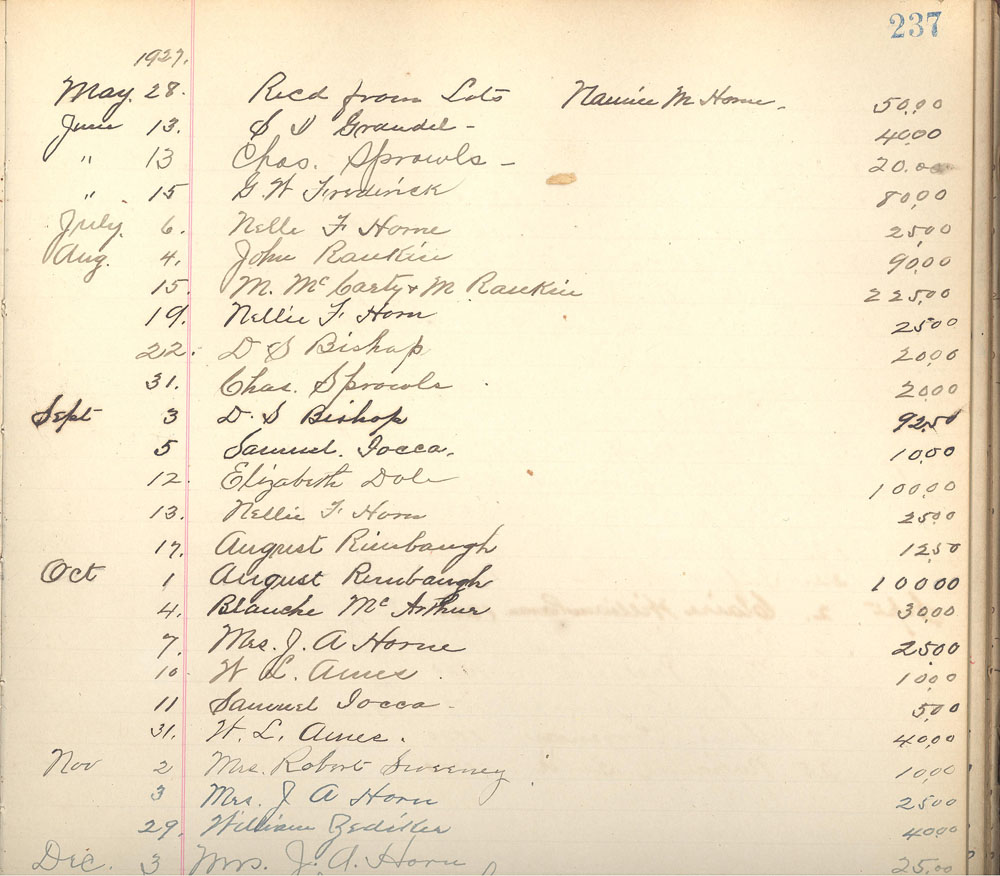 237
1927.
May. 28. Recd from Lots Naurice M Horne. 50.00
June 13. S D Grandel - 40.00
" 13 Chas. Sprowls - 20.00
" 15 G. W Frederick 80.00
July. 6. Nelle F Horne 25.00
Aug. 4. John Rankin 90.00
15. M. McCarty & M Rankin 225.00
19. Nellie F Horn 25.00
22. D S Bishop 20.00
31. Chas. Sprowls 20.00
Sept 3 D. S Bishop 92.50
5 Samuel Iocca. 10.00
12. Elizabeth Dole 100.00
13. Nellie F Horn 25.00
17. August Rimbaugh 12.50
Oct 1 August Rimbaugh 100.00
4. Blanche McArthur 30.00
7. Mrs. J. A Horne 25.00
10 W L. Ames. 10.00
11 Samuel Iocca - 5.00
31. W. L. Ames. 40.00
Nov 2 Mrs. Robert Sweeney 10.00
3 Mrs. J A Horn 25.00
29. William Zediker 40.00
Dec. 3 Mrs. J. A. Horn 25.00